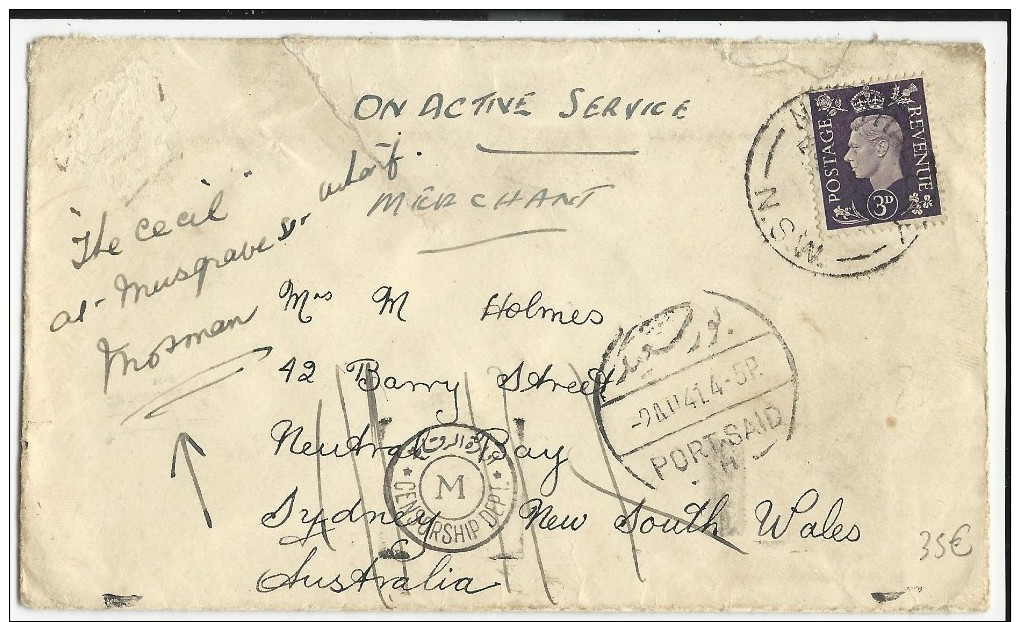 ON ACTIVE SERVICE
MERCHANT
POSTAGE REVENUE
3D
N.S.W
"The Cecil"
at Musgrave St wharf.
Mosman
Mrs M Holmes
42 Barry Street
Neutral Bay
Sydney New South Wales
Australia
بور سعيد
-2 AU 41.4-5P.
PORT-SAID
M
* CENSORSHIP DEPT. *
35€